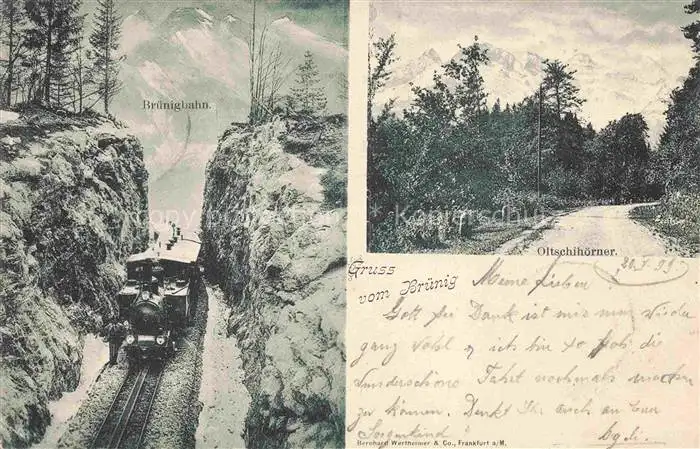 Brünigbahn.
Oltschihörner.
Gruss
vom Brünig
Meine Lieben!
Gott sei Dank ist mir nun wieder
ganz wohl, ich bin so froh die
Wunderschöne Fahrt nochmals machen
zu können. Denkt Ihr auch an
Sorgenkind"
Bernhard Wertheimer & Co., Frankfurt a/M.
copy protection Kopierschutz